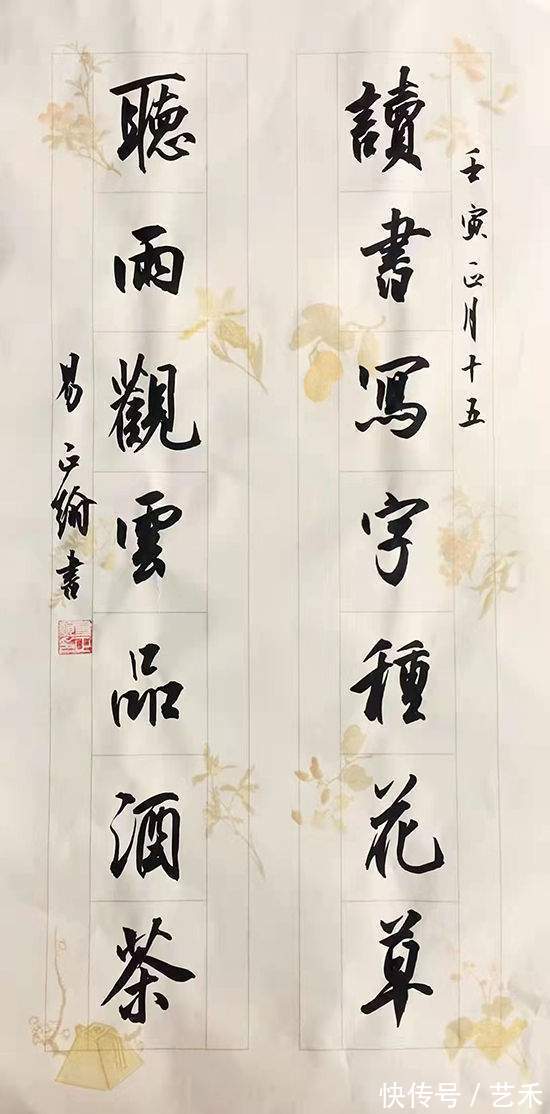 壬寅正月十五
讀書寫字種花草
聽雨觀雲品酒茶
易正綸書
快传号 / 艺禾